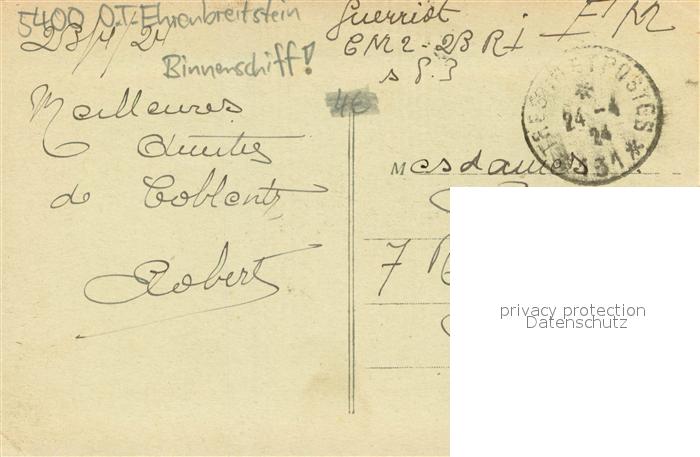 5400 O.T. Ehrenbreitstein
23/4/24
Binnenschiff!
Guerriot F M
CM2 - 23 RI
S P. 3
46
Meilleures
Amitiés
de Coblentz
Robert
TRESOR ET POSTES
24 - 4
24
* 31 *
Mesdames
7 R
privacy protection
Datenschutz